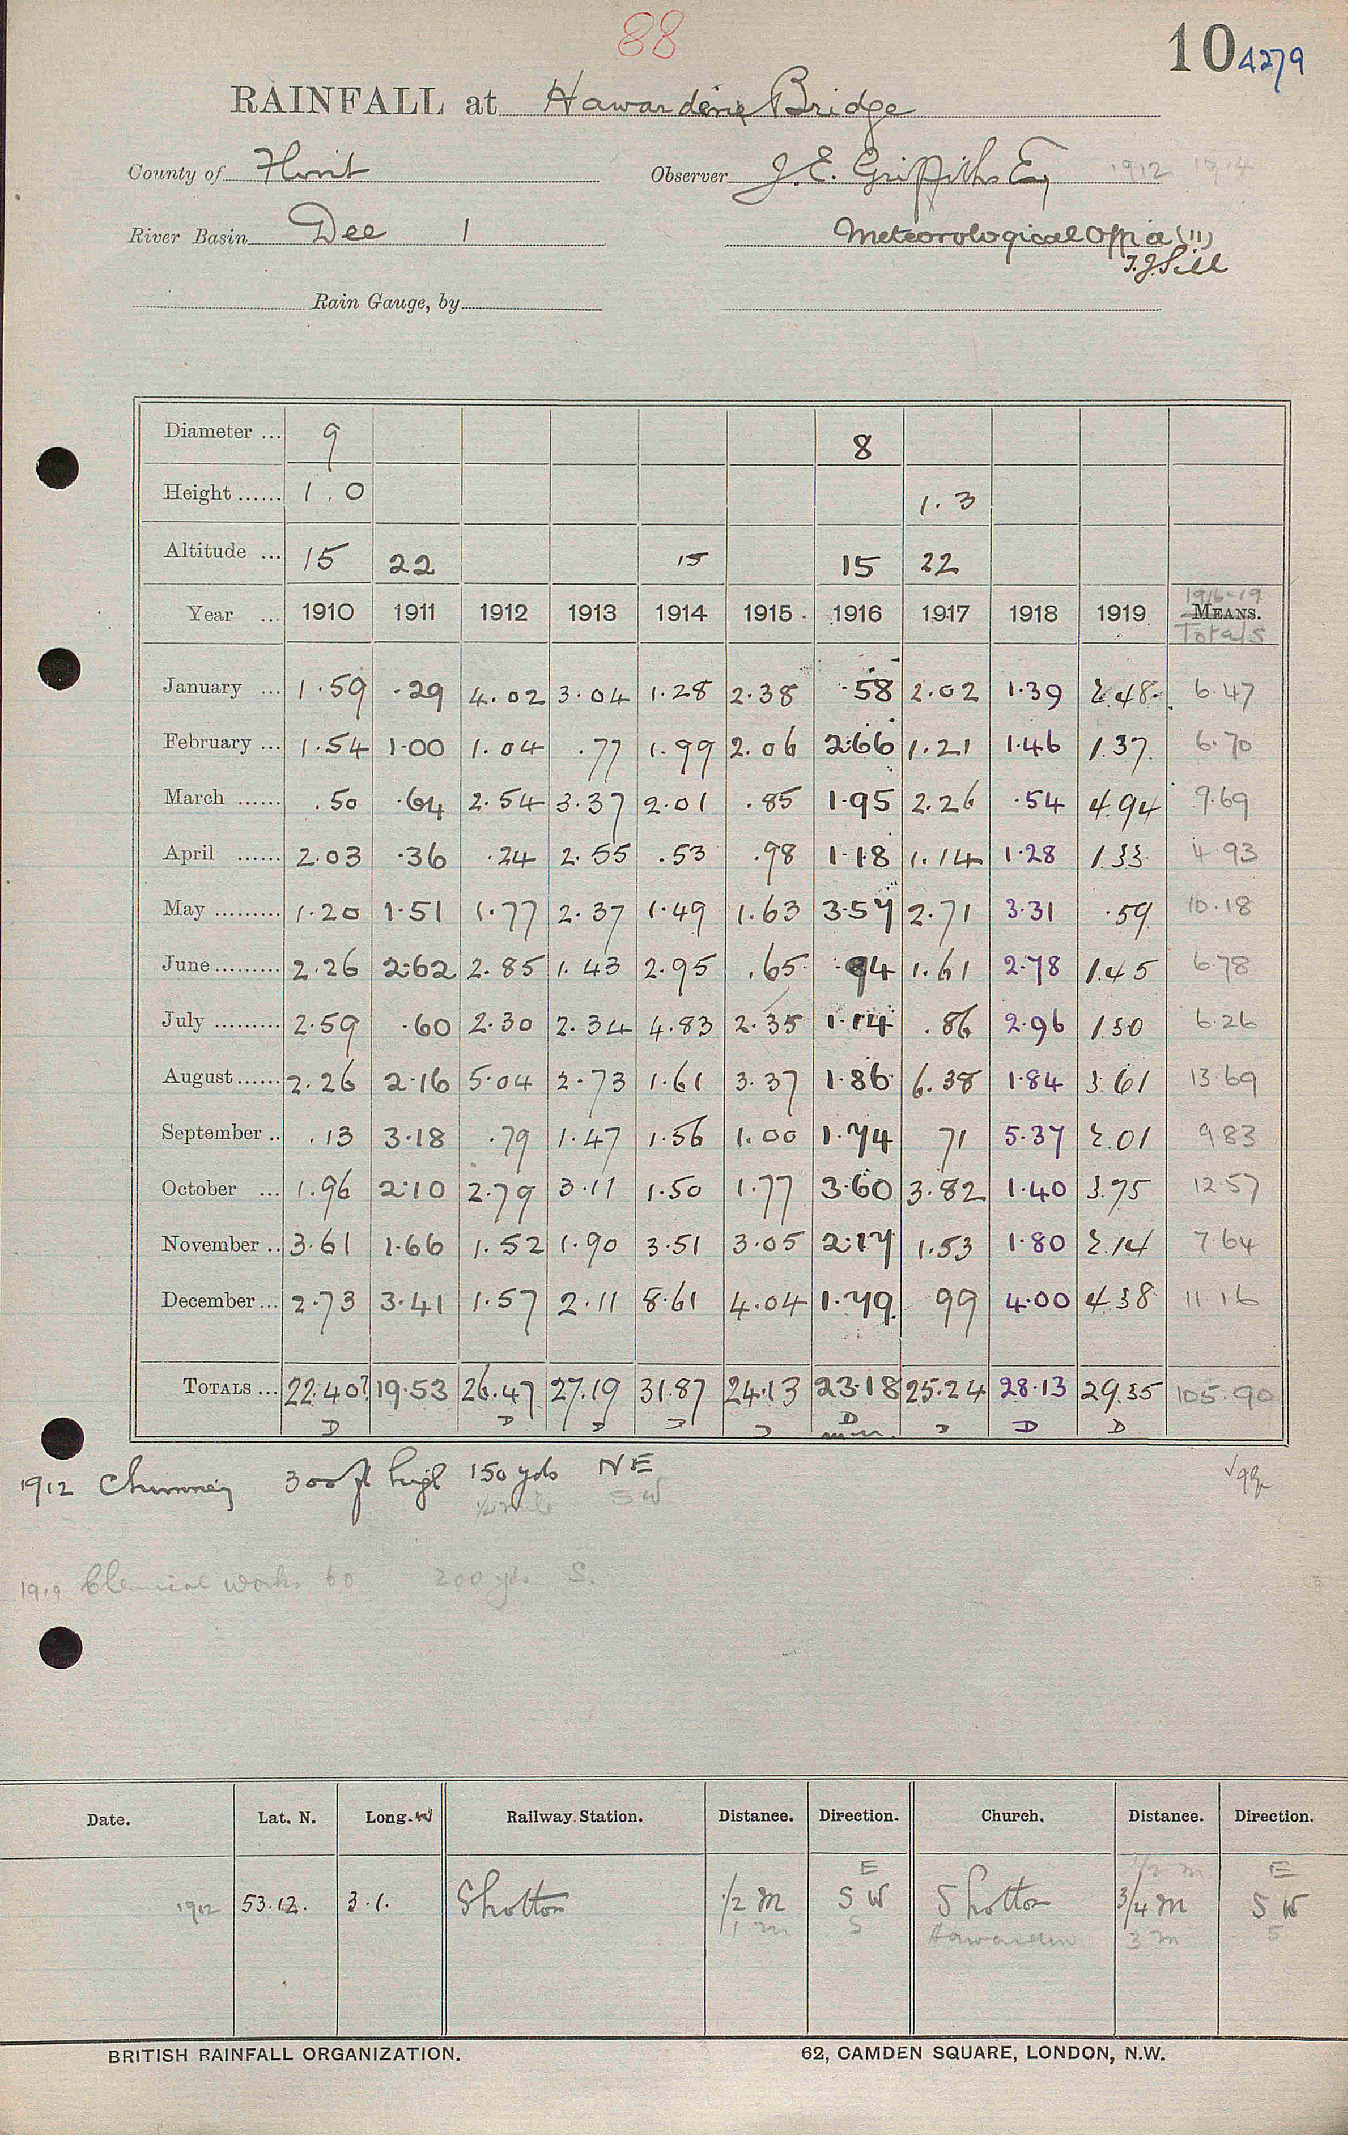 88
10 4279
RAINFALL at Hawarden Bridge
County of Flint Observer J. E. Griffiths Esq 1912 1914
River Basin Dee 1 Meteorological Office (11)
T. J. Sill
Rain Gauge, by
Diameter ... 9 8
Height ...... 1.0 1.3
Altitude ... 15 22 15 15 22
1916-19
Year ... 1910 1911 1912 1913 1914 1915 1916 1917 1918 1919 MEANS.
Totals
January ... 1.59 .29 4.02 3.04 1.28 2.38 .58 2.02 1.39 2.48 6.47
February ... 1.54 1.00 1.04 .77 1.99 2.06 2.66 1.21 1.46 1.37 6.70
March ...... .50 .64 2.54 3.37 2.01 .85 1.95 2.26 .54 4.94 9.69
April ...... 2.03 .36 .24 2.55 .53 .98 1.18 1.14 1.28 1.33 4.93
May ......... 1.20 1.51 1.77 2.37 1.49 1.63 3.57 2.71 3.31 .59 10.18
June ......... 2.26 2.62 2.85 1.43 2.95 .65 .94 1.61 2.78 1.45 6.78
July ......... 2.59 .60 2.30 2.34 4.83 2.35 1.14 .86 2.96 1.30 6.26
August ...... 2.26 2.16 5.04 2.73 1.61 3.37 1.86 6.38 1.84 3.61 13.69
September .. .13 3.18 .79 1.47 1.56 1.00 1.74 71 5.37 2.01 9.83
October ... 1.96 2.10 2.79 3.11 1.50 1.77 3.60 3.82 1.40 3.75 12.57
November .. 3.61 1.66 1.52 1.90 3.51 3.05 2.17 1.53 1.80 2.14 7.64
December ... 2.73 3.41 1.57 2.11 8.61 4.04 1.79 99 4.00 4.38 11.16
TOTALS ... 22.40? 19.53 26.47 27.19 31.87 24.13 23.18 25.24 28.13 29.35 105.90
D D D D D D D D D
1912 Chimney 300 ft high 150 yds NE
1/4 mile SW
1919 Chemical works 60 200 yds S.
Date. Lat. N. Long. W Railway Station. Distance. Direction. Church. Distance. Direction.
E 1/2 m E
1912 53.12. 3.1. Shotton 1/2 m S W Shotton 3/4 m S W
1 m S Hawarden 3 m S
BRITISH RAINFALL ORGANIZATION. 62, CAMDEN SQUARE, LONDON, N.W.